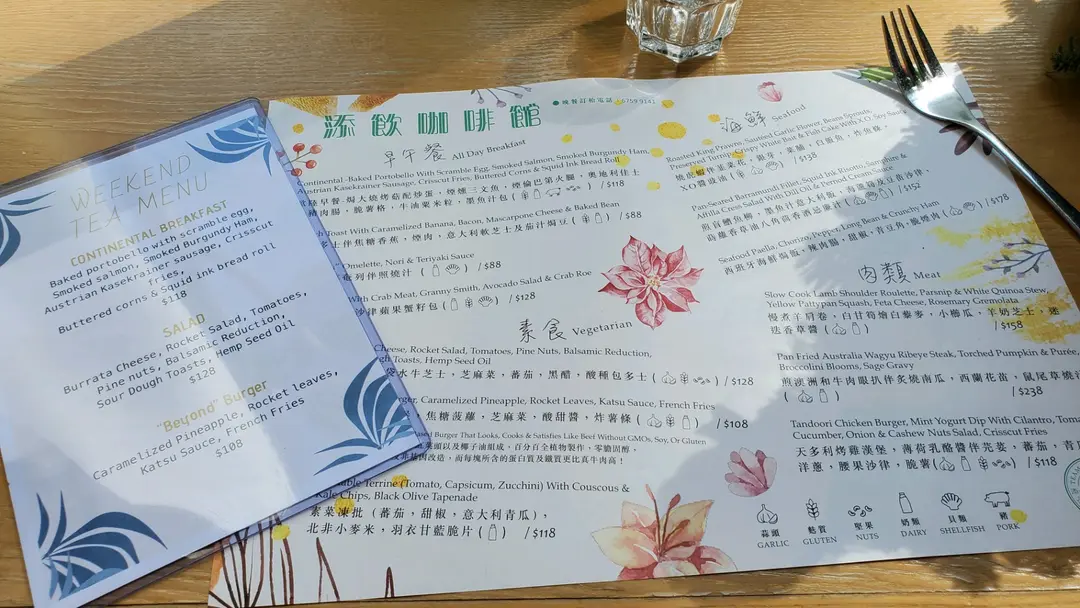 WEEKEND
TEA MENU
CONTINENTAL BREAKFAST
Baked portobello with scramble egg,
Smoked salmon, Smoked Burgundy Ham,
Austrian Kasekrainer sausage, Crisscut
fries,
Buttered corns & Squid ink bread roll
$118
SALAD
Burrata Cheese, Rocket Salad, Tomatoes,
Pine nuts, Balsamic Reduction,
Sour Dough Toasts, Hemp Seed Oil
$128
"Beyond" Burger
Caramelized Pineapple, Rocket leaves,
Katsu Sauce, French Fries
$108
添飲咖啡館
早午餐 All Day Breakfast
Continental -Baked Portobello With Scramble Egg, Smoked Salmon, Smoked Burgundy Ham,
Austrian Kasekrainer Sausage, Crisscut Fries, Buttered Corns & Squid Ink Bread Roll
大陸早餐-焗大燒烤菇配炒蛋，煙燻三文魚，煙倫巴第火腿，奧地利佳士
豬肉腸，脆薯格，牛油粟米粒，墨魚汁包 / $118
Toast With Caramelized Banana, Bacon, Mascarpone Cheese & Baked Bean
多士伴焦糖香蕉，煙肉，意大利軟芝士及茄汁焗豆 / $88
Omelette, Nori & Teriyaki Sauce
奄列伴照燒汁 / $88
With Crab Meat, Granny Smith, Avocado Salad & Crab Roe
沙律蘋果蟹籽包 / $128
素食 Vegetarian
Cheese, Rocket Salad, Tomatoes, Pine Nuts, Balsamic Reduction,
Toasts, Hemp Seed Oil
水牛芝士，芝麻菜，蕃茄，黑醋，酸種包多士 / $128
Caramelized Pineapple, Rocket Leaves, Katsu Sauce, French Fries
焦糖菠蘿，芝麻菜，酸甜醬，炸薯條 / $108
Based Burger That Looks, Cooks & Satisfies Like Beef Without GMOs, Soy, Or Gluten
菜頭以及椰子油組成，百分百全植物製作，零膽固醇，
基因改造，而每塊所含的蛋白質及鐵質更比真牛肉高！
Terrine (Tomato, Capsicum, Zucchini) With Couscous &
Kale Chips, Black Olive Tapenade
素菜凍批（蕃茄，甜椒，意大利青瓜），
北非小麥米，羽衣甘藍脆片 / $118
海鮮 Seafood
Roasted King Prawns, Sauteed Garlic Flower, Beans Sprouts,
Preserved Turnip, Crispy White Bait & Fish Cake With X.O. Soy Sauce
燒虎蝦伴韮菜花，銀芽，菜脯，白飯魚，炸魚條，
XO醬豉油 / $138
Pan-Seared Barramundi Fillet, Squid Ink Risotto, Samphire &
Affilla Cress Salad With Dill Oil & Pernod Cream Sauce
煎盲鰽魚柳，墨魚汁意大利飯，海蘆筍及豆苗沙律，
蒔蘿香草油八角茴香酒忌廉汁 / $152
Seafood Paella, Chorizo, Pepper, Long Bean & Crunchy Ham
西班牙海鮮焗飯，辣肉腸，甜椒，青豆角，脆燒肉 / $178
肉類 Meat
Slow Cook Lamb Shoulder Roulette, Parsnip & White Quinoa Stew,
Yellow Pattypan Squash, Feta Cheese, Rosemary Gremolata
慢煮羊肩卷，白甘筍燴白藜麥，小櫛瓜，羊奶芝士，迷
迭香草醬 / $158
Pan Fried Australia Wagyu Ribeye Steak, Torched Pumpkin & Purée,
Broccolini Blooms, Sage Gravy
煎澳洲和牛肉眼扒伴炙燒南瓜，西蘭花苗，鼠尾草燒汁
/ $238
Tandoori Chicken Burger, Mint Yogurt Dip With Cilantro, Tomato,
Cucumber, Onion & Cashew Nuts Salad, Crisscut Fries
天多利烤雞漢堡，薄荷乳酪醬伴芫荽，蕃茄，青瓜
洋蔥，腰果沙律，脆薯 / $118
蒜頭 麩質 堅果 奶類 貝類 豬
GARLIC GLUTEN NUTS DAIRY SHELLFISH PORK